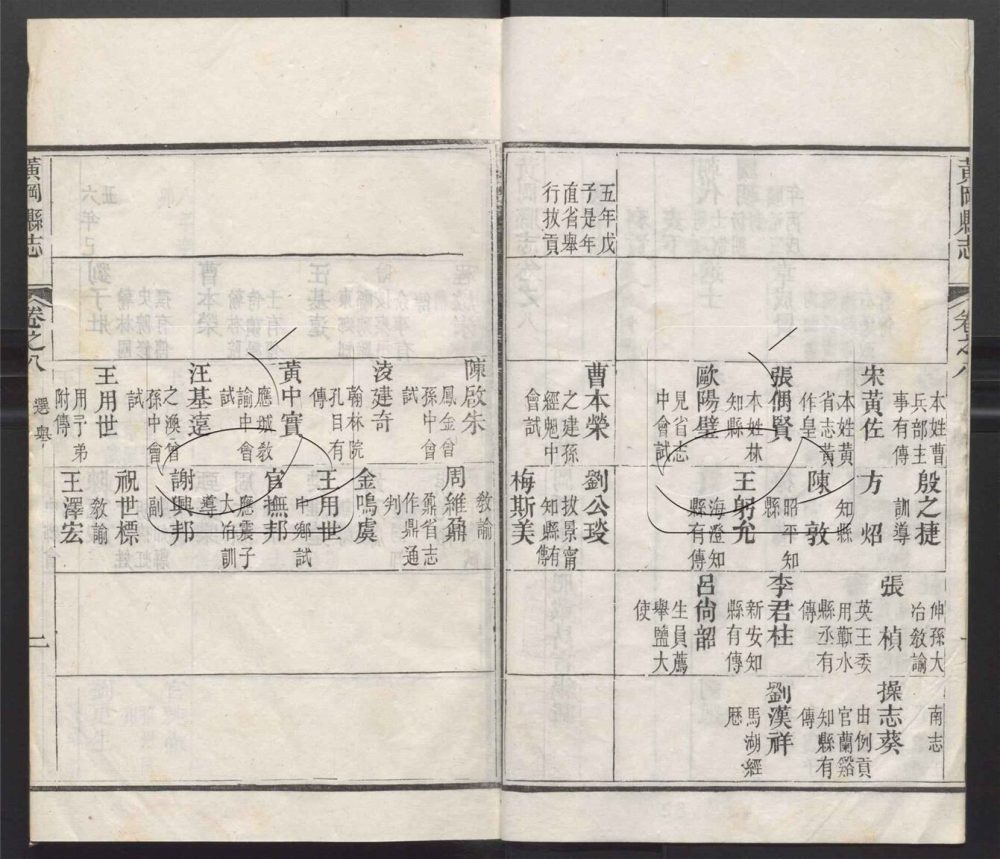 黃岡縣志
卷之八
五年戊
子是年
直省舉
行拔貢
本姓曹
兵部主
事有傳
宋黃佐
本姓黃
省志黃
作皇
張偶賢
本姓林
知縣
歐陽璧
見省志
中會試
曹本榮
之建孫
經魁中
會試
訓導
殷之捷
方炤
知縣
陳敦
昭平知
縣
王躬允
海澄知
縣有傳
劉公琰
拔景甯
知縣有傳
梅斯美
伸孫大
冶敎諭
張楨
英王委
用蘄水
縣丞有
傳
李君柱
新安知
縣有傳
呂尙韶
生員薦
舉鹽大
使
南志
操志葵
由例貢
官蘭谿
知縣有
傳
劉漢祥
馬湖經
歷
陳啟朱
鳳金曾
孫中會
試
淩建奇
翰林院
孔目有
傳
黃中實
應城敎
諭中會
試
汪基遠
之漁曾
孫中會
試
王用世
用予弟
附傳
敎諭
周維鼐
鼐省志
作鼎通
判
金鳴虞
王用世
中鄉試
官撫邦
應震子
大冶訓
導
謝興邦
副
祝世標
敎諭
王澤宏
黃岡縣志
卷之八
選舉
二